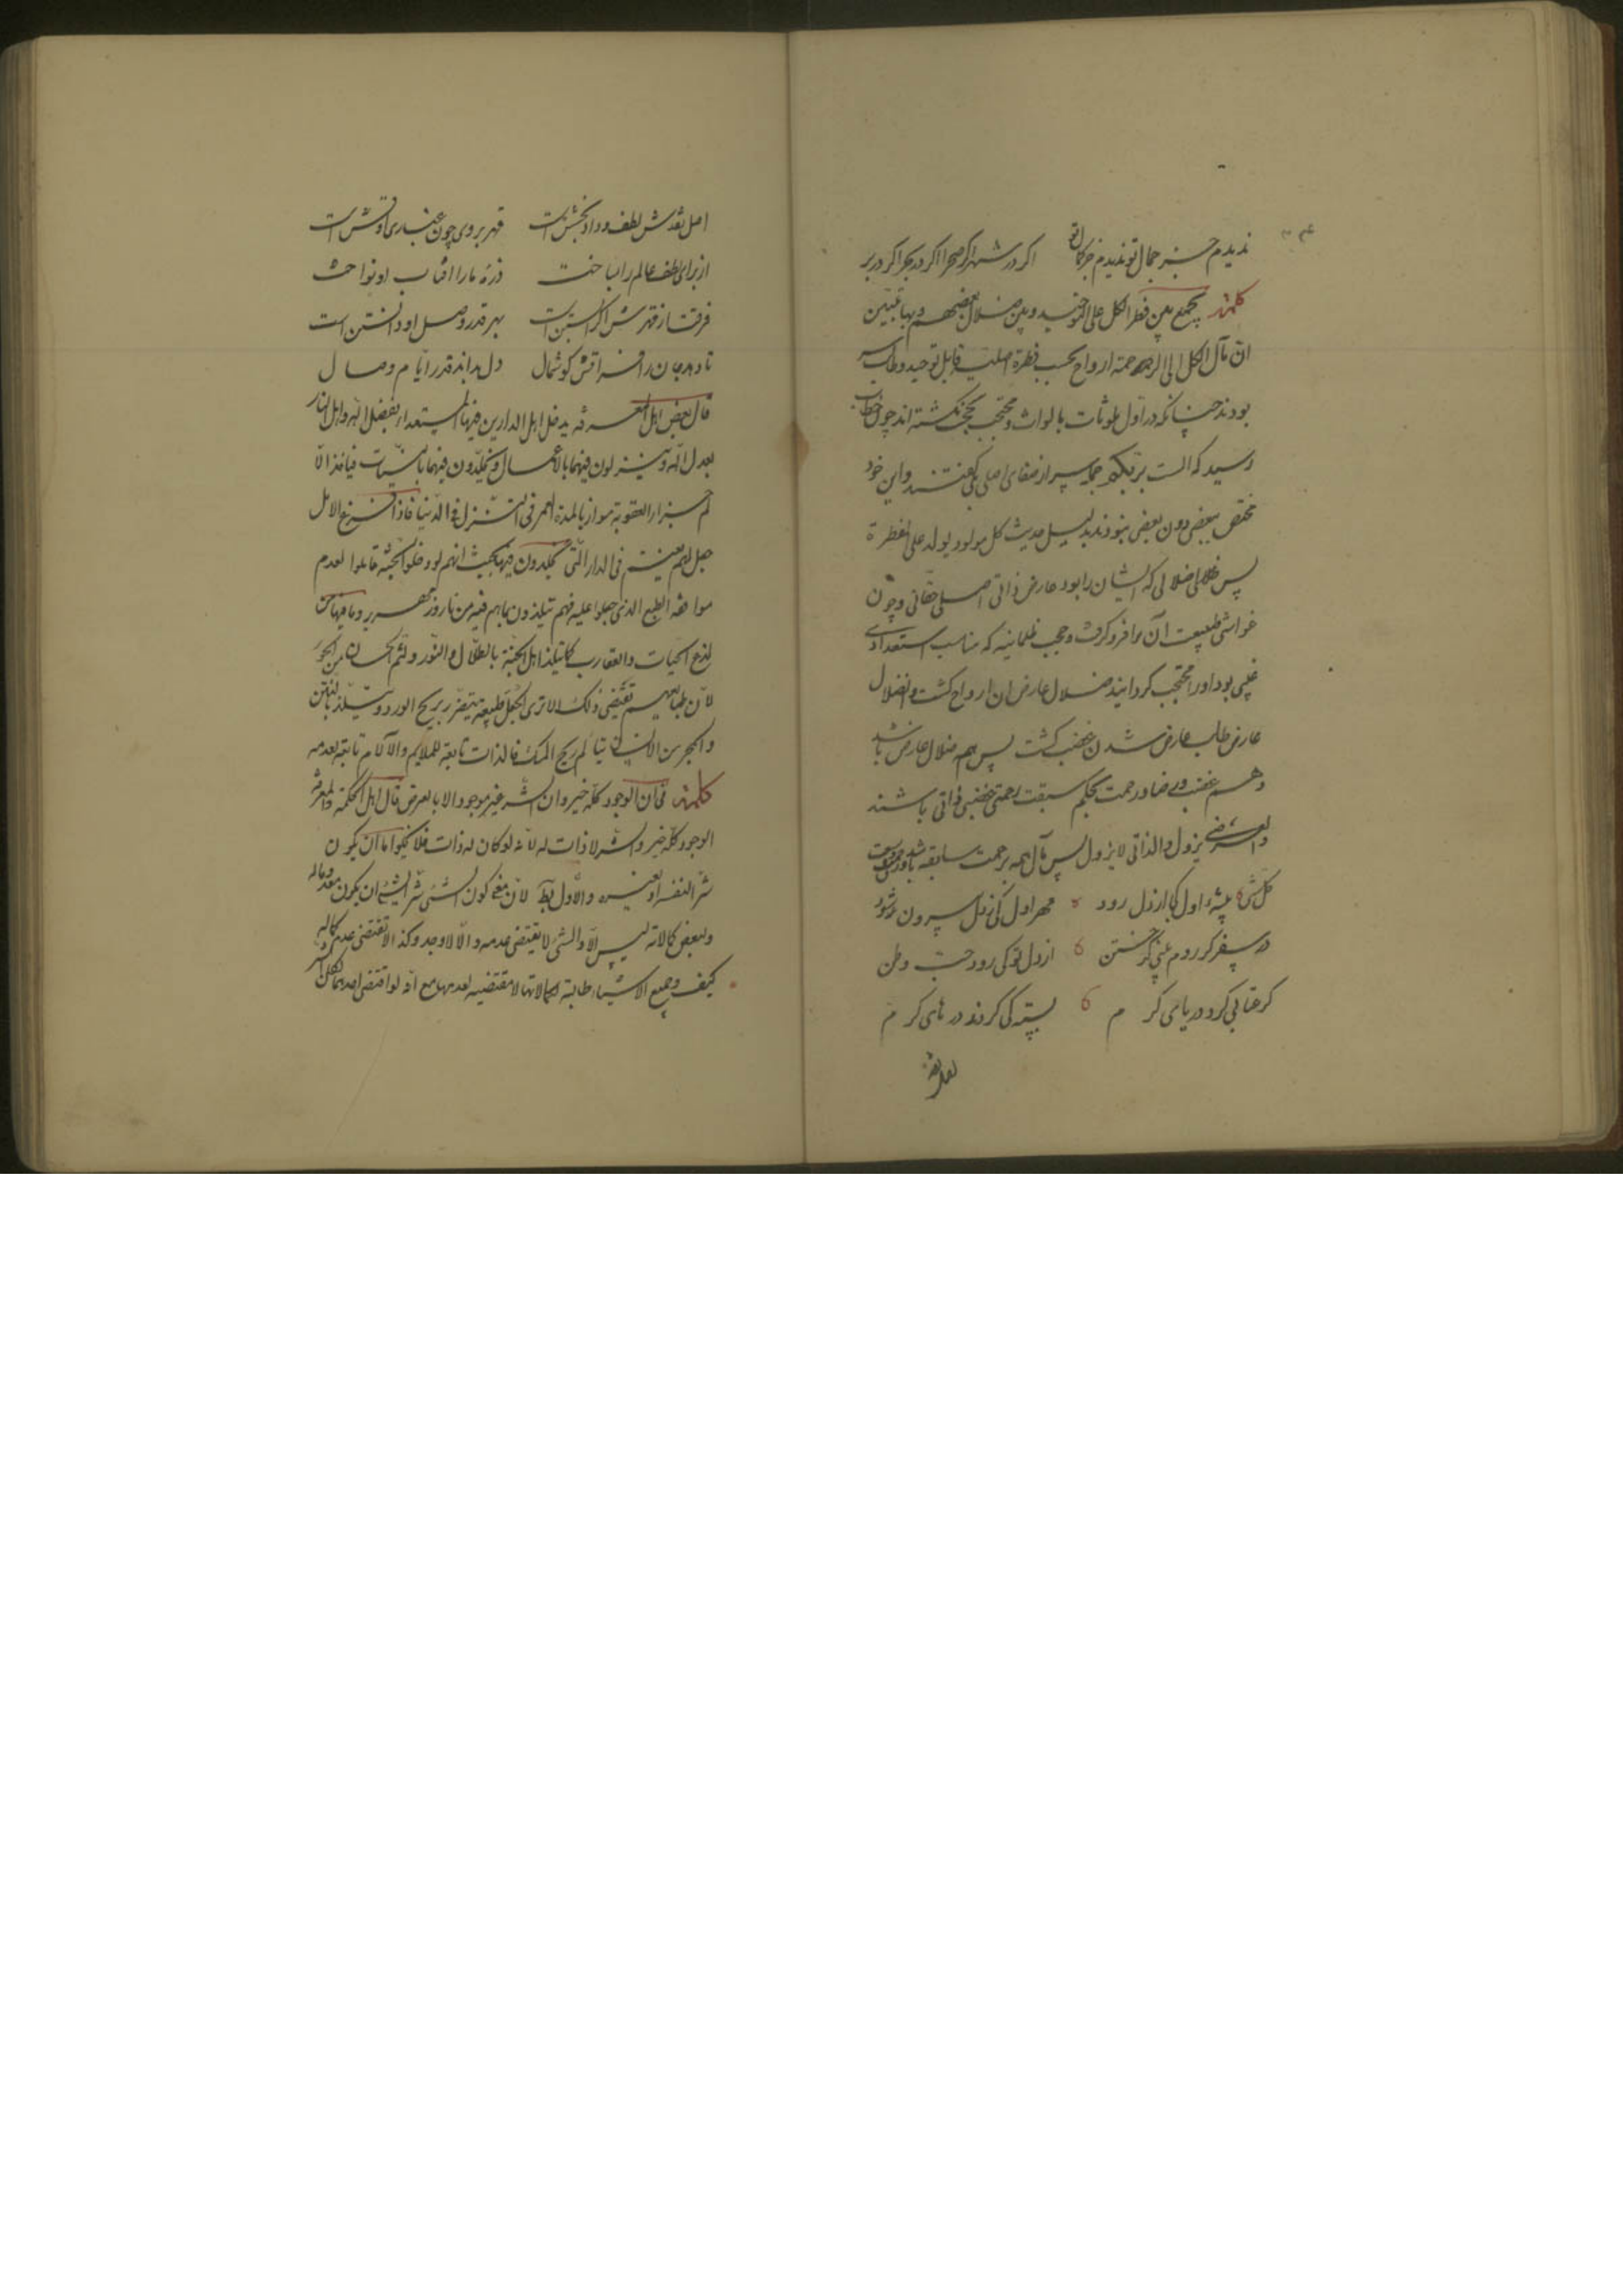 ندیدم جز جمال تو ندیدم جز کمال تو اگر در شهر اگر صحرا اگر در بحر اگر در بر
کلمة یجمع بین فطر الکل علی التوحید و بین ضلال بعضهم و بها تبین
ان مآل الکل الی الرحمة ارواح بحسب فطرة اصلیه قابل توحید و طالب
بودند چنانکه در اول ملوثات بالواث و محتجب بحجب نگشته اند چون خطاب
رسید که الست بربکم جمله سر از صفای اصلی بلی گفتند و این خود
مختص ببعضی دون بعضی نبودند بدلیل حدیث کل مولود یولد علی الفطرة
پس ضلالی که ایشان را بود عارض ذاتی اصلی حقانی و چون
غواشی طبیعت آن را فرو گرفت و حجب ظلمانیه که مناسب استعدادی
غیبی بود او را محتجب گردانید ضلال عارض ان ارواح گشت و الضلال
عارض طالب عارض شدن غضب گشت پس هم ضلال عارض باشد
و هم غضب و رضا و رحمت بحکم سبقت رحمتی غضبی ذاتی باشند
والعرضی یزول والذاتی لا یزول پس مآل همه برحمت سابقه باشد
کل شیء عشق اول کی از دل رود مهر اول کی ز دل بیرون شود
در سفر گر روم بینی از دل تو کی رود حب وطن
گر عتابی کرد دریای کرم بسته کی کردند درهای کرم
اصل نقدش لطف و داد و بخشش است قهر بر وی چون غباری از غش است
از برای لطف عالم را بساخت ذره ها را افتاب او نواخت
فرقت از قهرش اگر آبستن است بهر قدر وصل او دانستن است
تا دهد جان را فراقش گوشمال دل بداند قدر ایام وصال
قال بعض اهل المعرفة یدخل اهل الدارین فیهما السعداء بفضل الله و اهل النار
بعدل الله و ینزلون فیهما بالاعمال و یخلدون فیهما بالنیات فیاخذ الالم
جزاء العقوبة موازیا لمدة العمر فی الشرک فی الدنیا فاذا فرغ الامد
جعل لهم نعیم فی الدار التی یخلدون فیها بحیث انهم لو دخلوا الجنة تالموا لعدم
موافقة الطبع الذی جبلوا علیه فهم یتلذذون بما هم فیه من نار و زمهریر و ما فیها من
لدغ الحیات والعقارب کما یتلذذ اهل الجنة بالظلال والنور و لثم الحسان من الحور
لان طبایعهم تقتضی ذلک الا تری الجعل علی طبیعته یتضرر بریح الورد و یتلذذ بالنتن
والمحرور من الانسان یتالم بریح المسک فاللذات تابعة للملایم والآلام تابعة لعدمه
کلمة فی ان الوجود کله خیر و ان الشر غیر موجود الا بالعرض قال اهل الحکمة والمعرفة
الوجود کله خیر والشر لا ذات له لانه لو کان له ذات فلا یخلو اما ان یکون
شرا لنفسه او لغیره والاول بط لان معنی کون الشیء شرا لشیء ان یکون معدما له
و لبعض کمالاته لیس الا والشیء لا یقتضی عدمه والا لا وجد و کذا لا تقتضی عدم کماله
کیف و جمیع الاشیاء طالبة لکمالاتها لا مقتضیه لعدمها مع انه لو اقتضی احدهما لکان